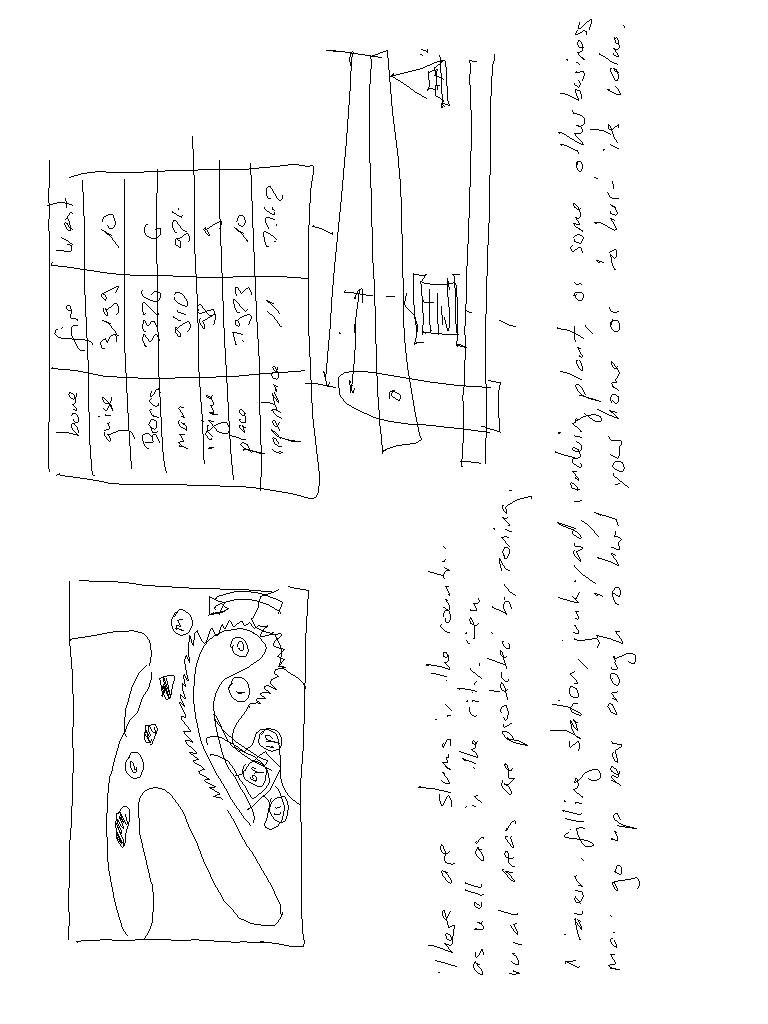 bone fire West
guise 3199 10
3376 6
man 940 92%
9
place 7973 10
11 7762
M
There are slums in the country
as well as in the city. Few
rural areas are protected by zoning.
A tavern, filling station, junk yard, rendering plant, or some other business
may go up near enough to hurt your home or to hurt its value.